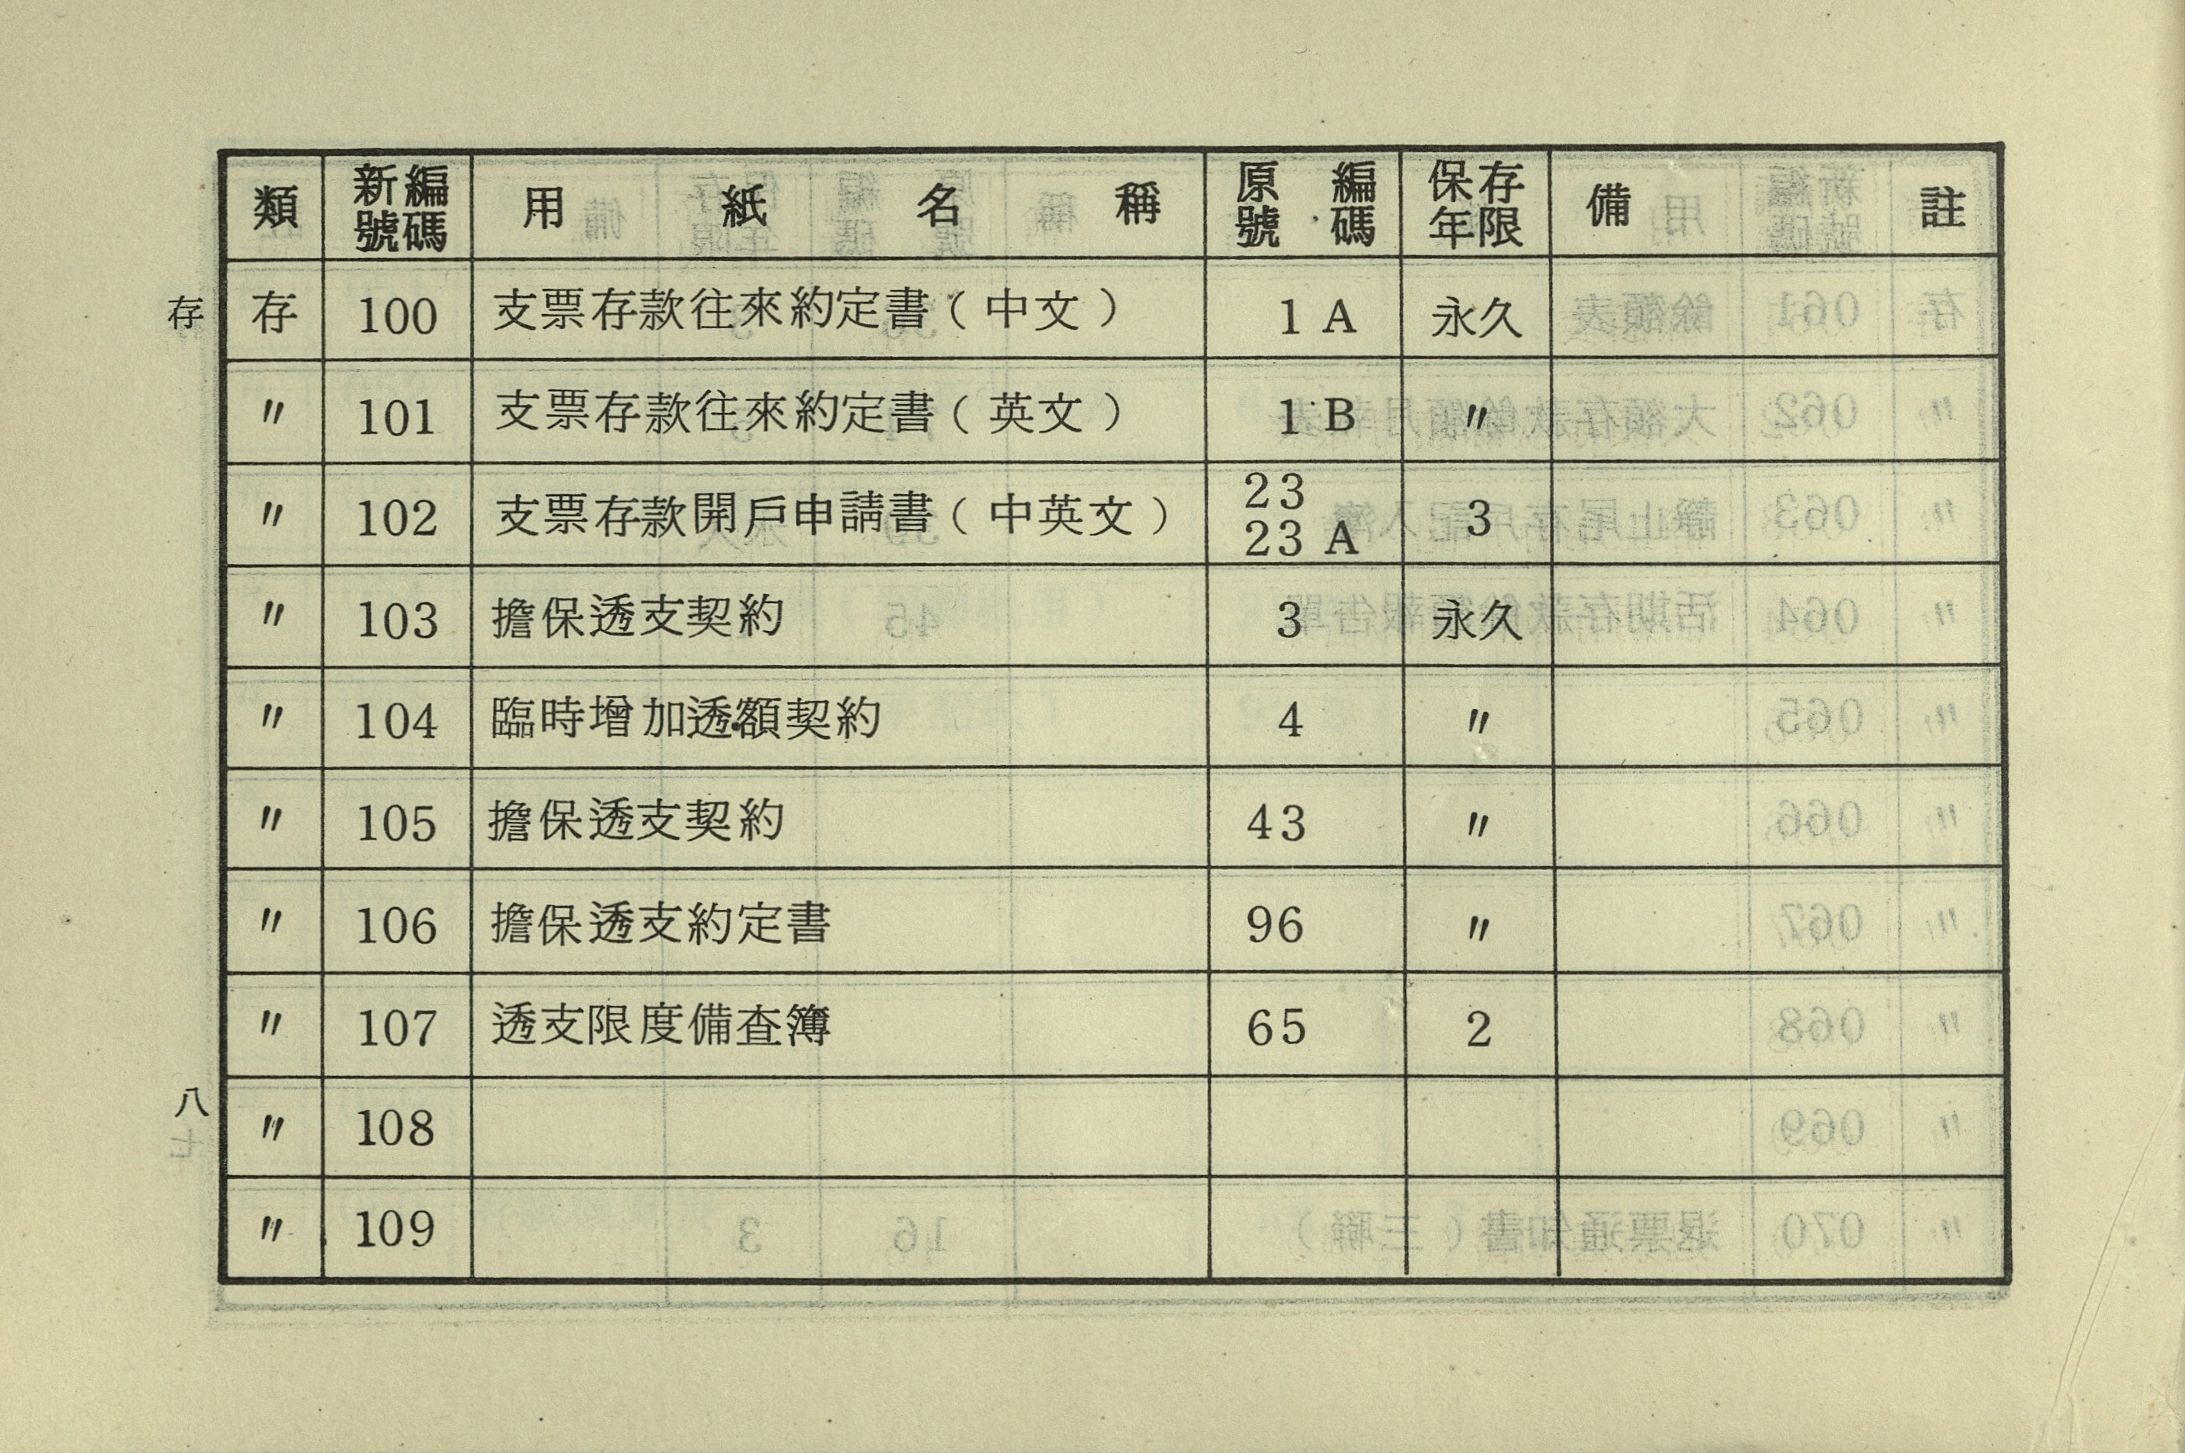 類 新編號碼 用紙名稱 原編號碼 保存年限 備註
存 100 支票存款往來約定書(中文) 1 A 永久
〃 101 支票存款往來約定書(英文) 1 B 〃
〃 102 支票存款開戶申請書(中英文) 23 23 A 3
〃 103 擔保透支契約 3 永久
〃 104 臨時增加透額契約 4 〃
〃 105 擔保透支契約 43 〃
〃 106 擔保透支約定書 96 〃
〃 107 透支限度備查簿 65 2
〃 108
〃 109
存
八